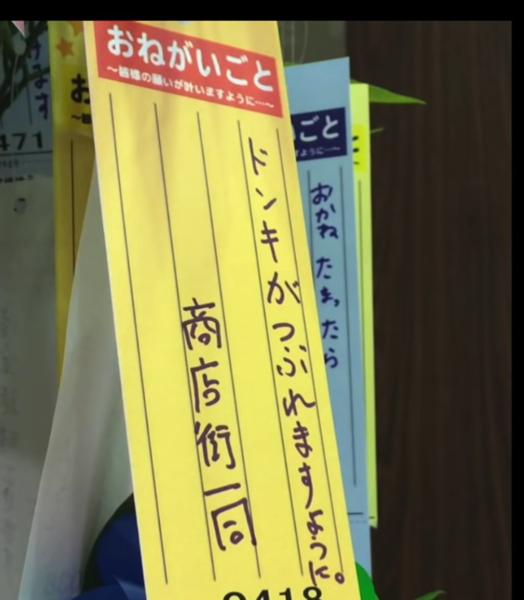 おねがいごと
～皆様の願いが叶いますように…～
ドンキがつぶれますように。
商店街一同
0418
ごと
ように…～
おかね たまったら
471
お